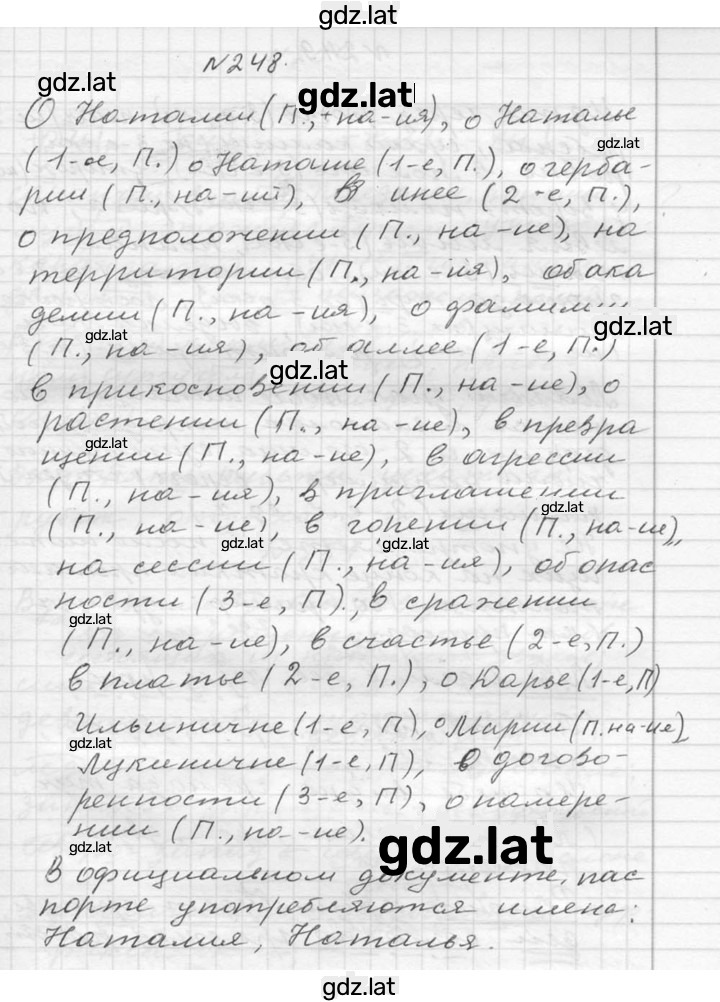 gdz.lat
N248.
gdz.lat
gdz.lat
О Наталии (П., на-ия), о Наталье
gdz.lat
(1-е, П.) о Наташе (1-е, П.), о герба-
рии (П., на-ий), в инее (2-е, П.),
о предположении (П., на-ие), на
территории (П., на-ия), об ака
демии (П., на-ия), о фамили...
gdz.lat
gdz.lat
(П., на-ия), об аллее (1-е, П.)
gdz.lat
в прикосновении (П., на-ие), о
растении (П., на-ие), в превра
gdz.lat
щении (П., на-ие), в агрессии
(П., на-ия), в приглашении
gdz.lat
(П., на-ие), в гонении (П., на-ие),
gdz.lat
gdz.lat
на сессии (П., на-ия), об опас
ности (3-е, П)., в сражении
gdz.lat
(П., на-ие), в счастье (2-е, П.)
в платье (2-е, П.), о Дарье (1-е, П)
Ильиничне (1-е, П), о Марии (П. на-ие)
gdz.lat
Лукиничне (1-е, П), в догово-
ренности (3-е, П), о намере-
нии (П., на-ие).
gdz.lat
gdz.lat
В официальном документе, пас
порте употребляются имена:
Наталия, Наталья.
gdz.lat